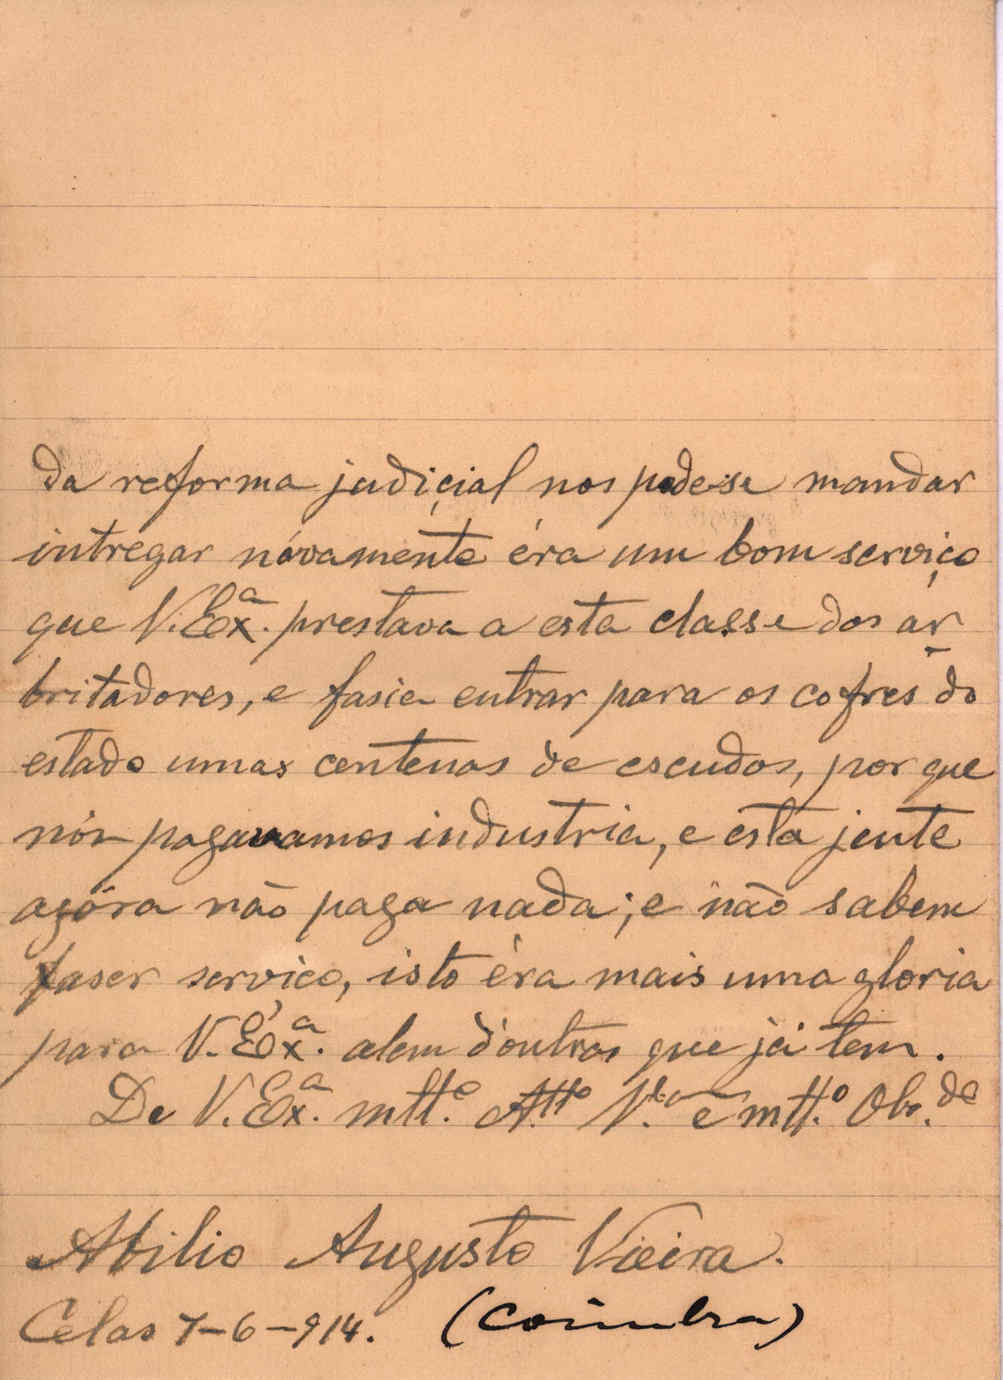 da reforma judiçial nos podese mandar
intregar nóvamente éra um bom serviço
que V. Exª. prestava a esta classe dos ar
britadores, e fasia entrar para os cofres do
estado umas centenas de escudos, por que
nós pagavamos industria, e esta jente
agóra não paga nada; e não sabem
faser serviço, isto éra mais uma gloria
para V. Exª. alem d'outras que já tem.
De V. Exª. mttº. Attº V.ᵒʳ e mttº. Obr.ᵈᵒ
Abilio Augusto Vieira.
Celas 7-6-914. (Coimbra)